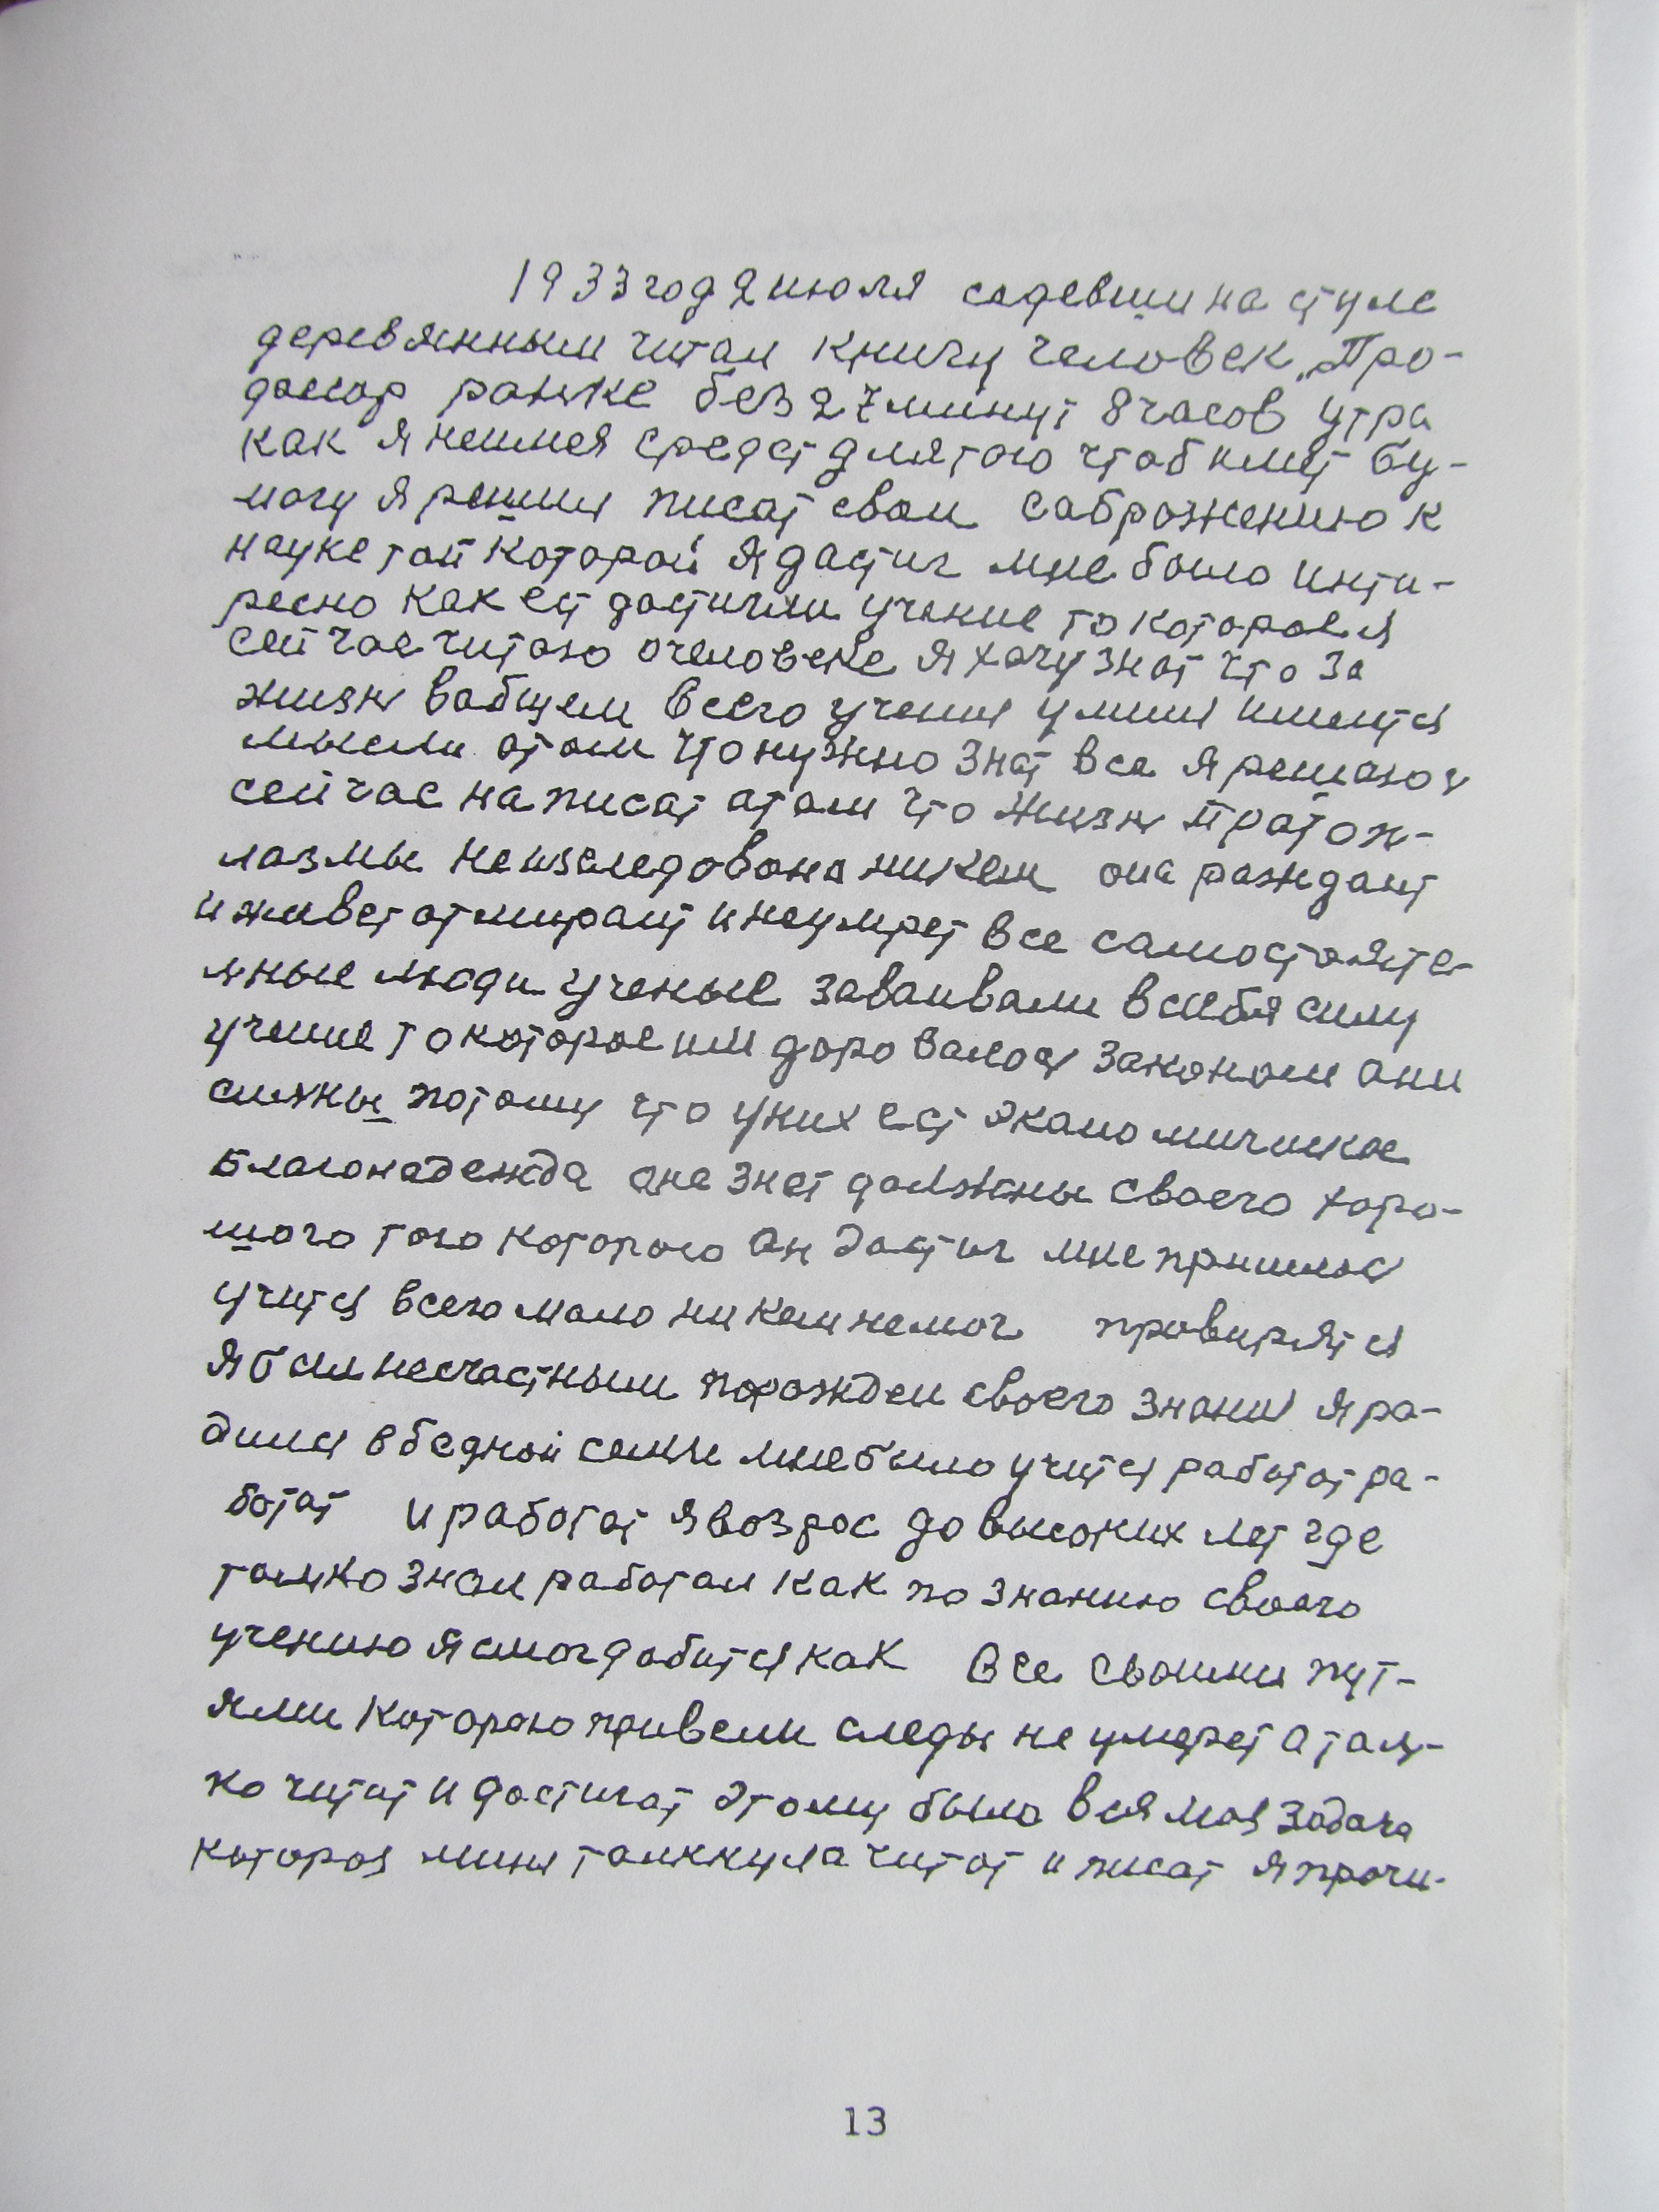 1933 год 2 июля садевши на стуле
деревянным читал книгу человек „Про-
фессор ранке без 27 минут 8 часов утра
как я неимея средст длятого чтоб имет бу-
могу я решил писат свои саброжению к
науке той которой я дастиг мне было инти-
ресно как ест достигли учение то которое я
сейчас читаю очеловеке я хачу знат что за
жизн вабщем всего учения у миня имеится
мысли отом что нужно знат все я решаюс
сейчас написат атом что жизн пратоп-
лазмы не изследована никем она раждает
и живет отмирает и неумрет все самостояте-
лные люди ученые заваивали всебя силу
учение то которое им даровалос законом они
силны потому что у них ест экономическое
Благонадежда она знат должны своего харо-
шого того которого он дастиг мне пришлос
учится всего мало никем немог провирятся
я бил несчастным порожден своего знания я ра-
дился в бедной семьи мне было учится работат ра-
ботат и работат я возрос до высоких лет где
толко знал работал как по знанию своего
учению я смог добится как все своими пут-
ями которою привели следы не умерет а тол-
ко читат и достигат этому была вся моя задача
которая миня толкнула читат и писат я прочи-
13